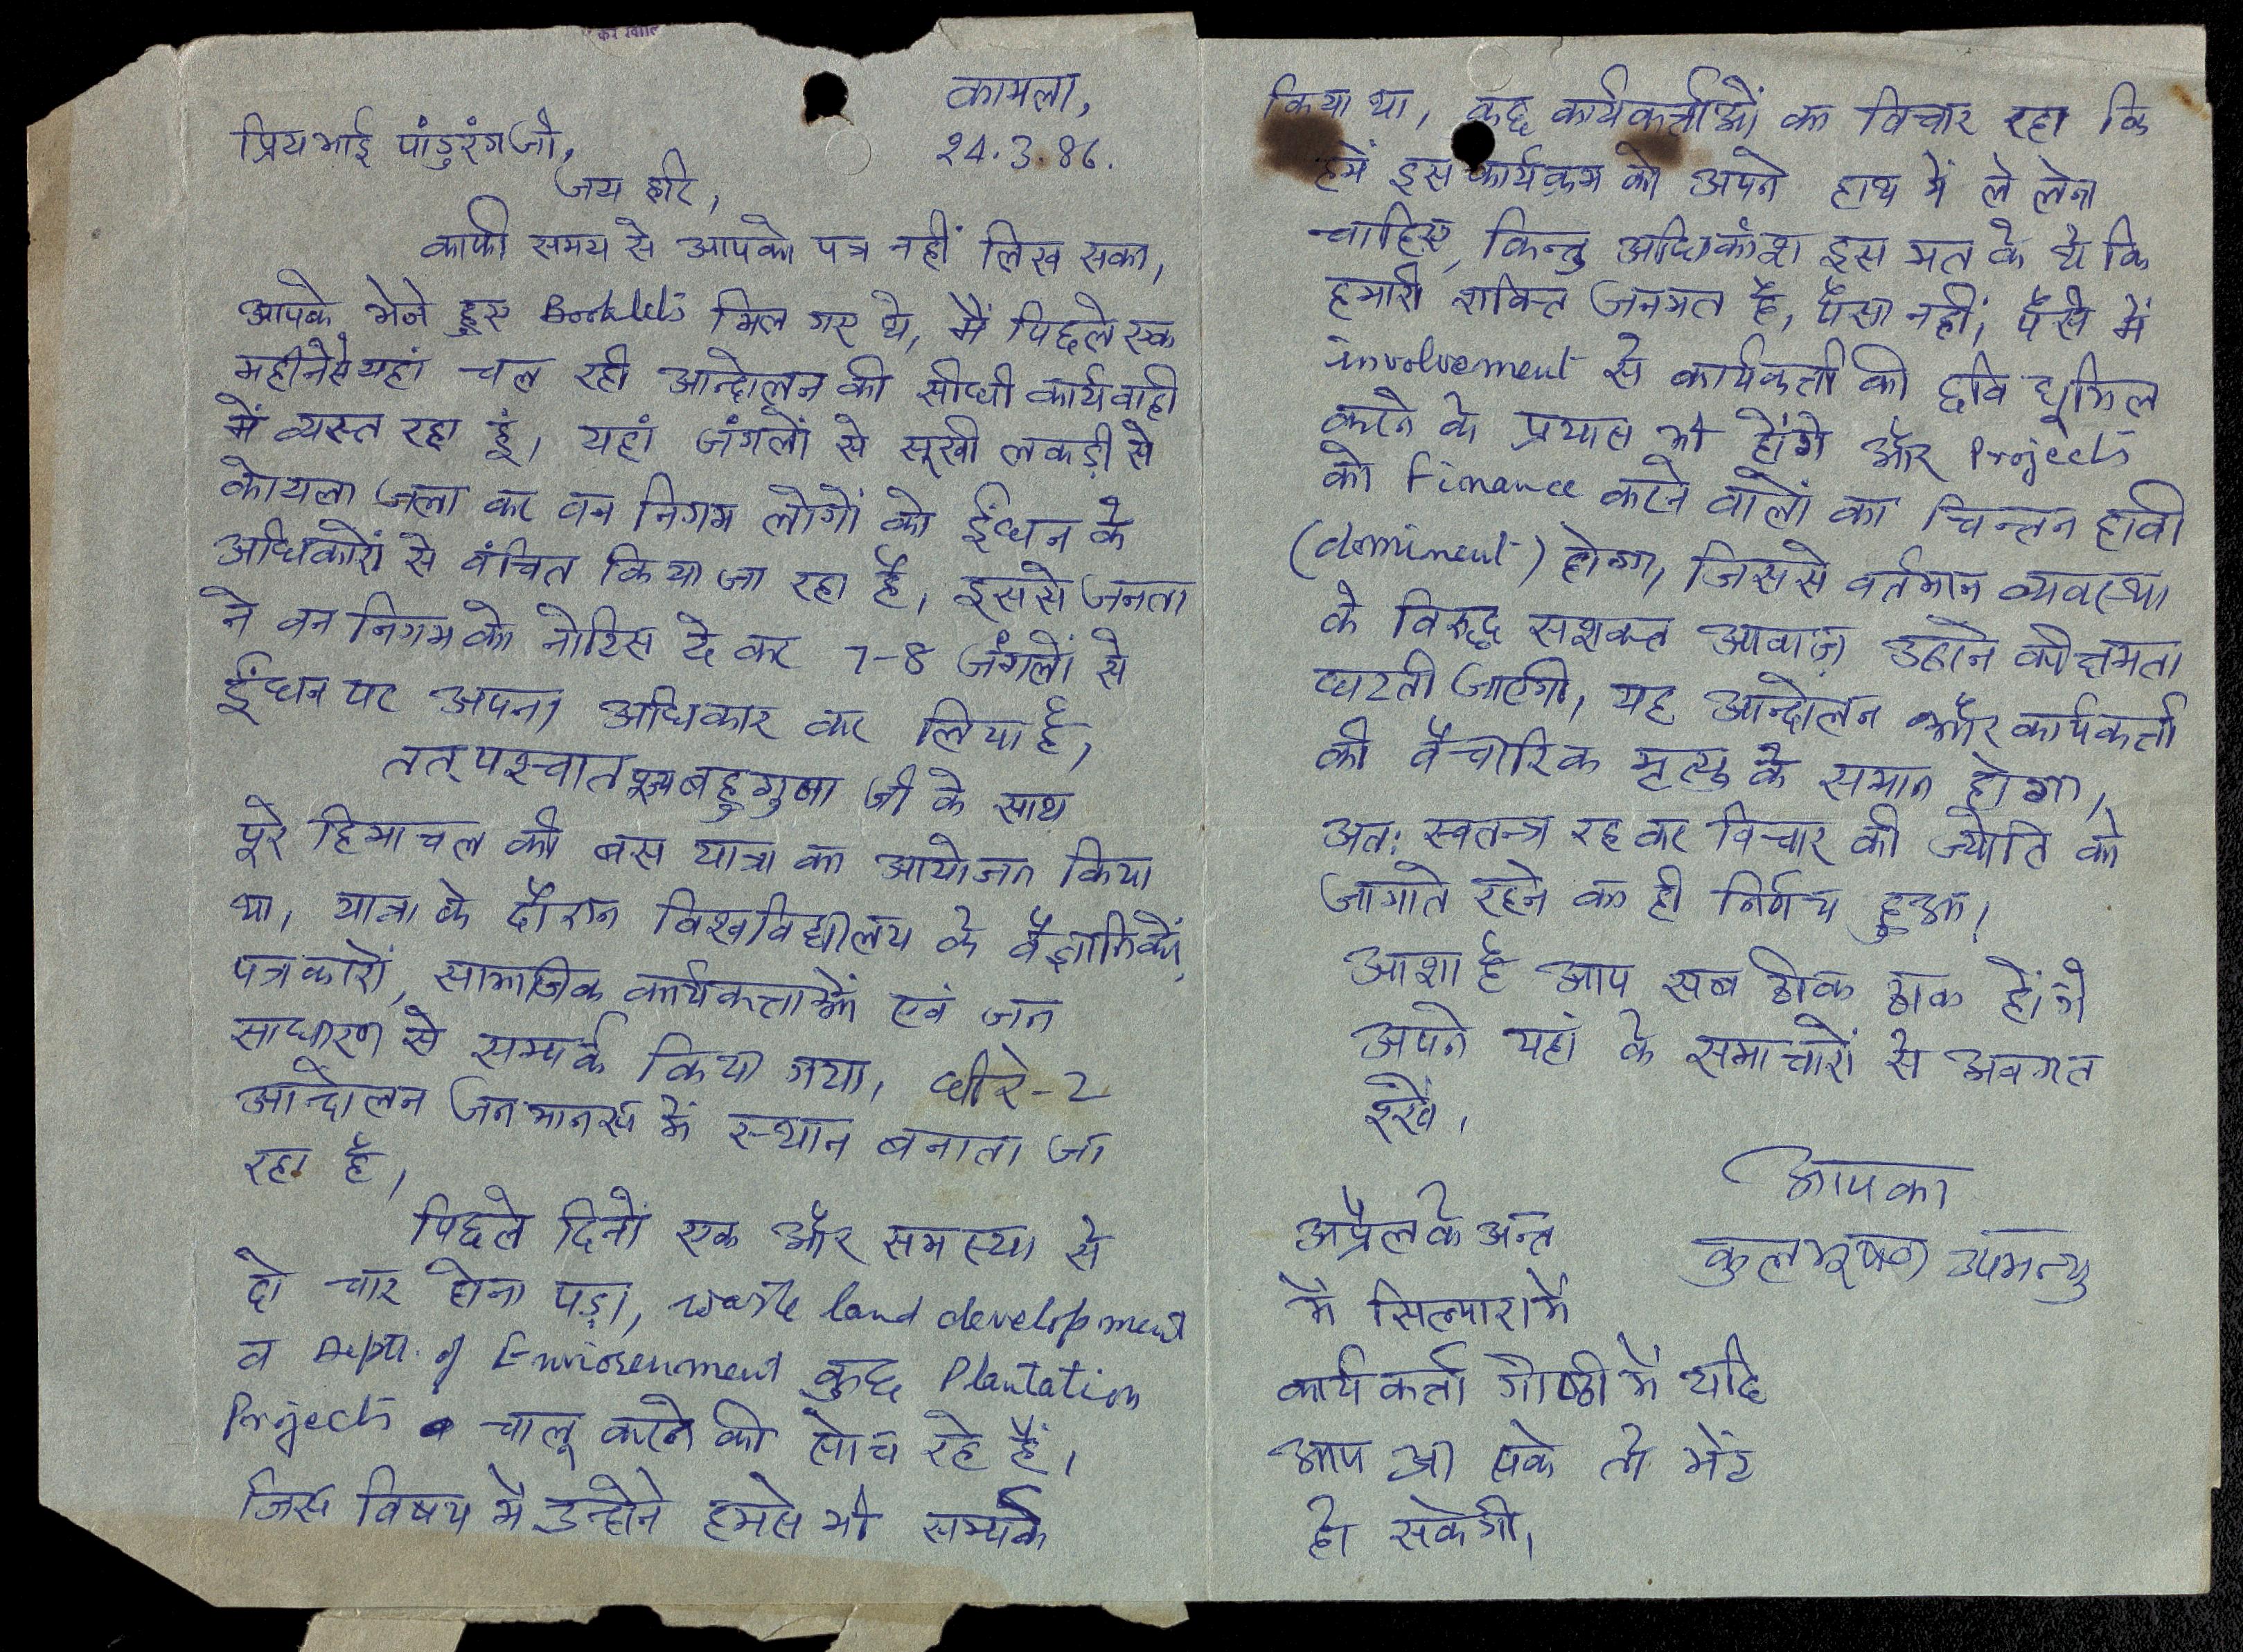 कामला,
24.3.86.
प्रिय भाई पांडुरंग जी,
जय हरि,
काफी समय से आपको पत्र नहीं लिख सका,
आपके भेजे हुए Booklets मिल गए थे, मैं पिछले एक
महीने से यहां चल रही आन्दोलन की सीधी कार्यवाही
में व्यस्त रहा हूं, यहां जंगलों से सूखी लकड़ी से
कोयला जला कर वन निगम लोगों को ईंधन के
अधिकारों से वंचित किया जा रहा है, इससे जनता
ने वन निगम को नोटिस दे कर 7-8 जंगलों से
ईंधन पर अपना अधिकार कर लिया है,
तत्पश्चात पूज्य बहुगुणा जी के साथ
पूरे हिमाचल की बस यात्रा का आयोजन किया
था, यात्रा के दौरान विश्वविद्यालय के वैज्ञानिकों,
पत्रकारों, सामाजिक कार्यकर्त्ताओं एवं जन
साधारण से सम्पर्क किया गया, धीरे-2
आन्दोलन जनमानस में स्थान बनाता जा
रहा है,
पिछले दिनों एक और समस्या से
दो चार होना पड़ा, waste land development
व Deptt. of Enviorenment कुछ Plantation
Projects चालू करने की सोच रहे हैं,
जिस विषय में उन्होंने हमसे भी सम्पर्क
किया था, कुछ कार्यकर्त्ताओं का विचार रहा कि
हमें इस कार्यक्रम को अपने हाथ में ले लेना
चाहिए, किन्तु अधिकांश इस मत के थे कि
हमारी शक्ति जनमत है, पैसा नहीं, पैसे में
involvement से कार्यकर्ता की छवि धूमिल
करने के प्रयास भी होंगे और Projects
को Finance करने वालों का चिन्तन हावी
(dominent) होगा, जिससे वर्तमान व्यवस्था
के विरूद्ध सशक्त आवाज़ उठाने की क्षमता
घटती जाएगी, यह आन्दोलन और कार्यकर्त्ता
की वैचारिक मृत्यु के समान होगा,
अतः स्वतन्त्र रह कर विचार की ज्योति को
जागाते रहने का ही निर्णय हुआ,
आशा है आप सब ठीक ठाक होंगे
अपने यहां के समाचारों से अवगत
रखें,
आपका
कुलभूषण उपमन्यु
अप्रैल के अन्त
में सिल्यारा में
कार्यकर्त्ता गोष्ठी में यदि
आप आ सके तो भेंट
हो सकेगी,